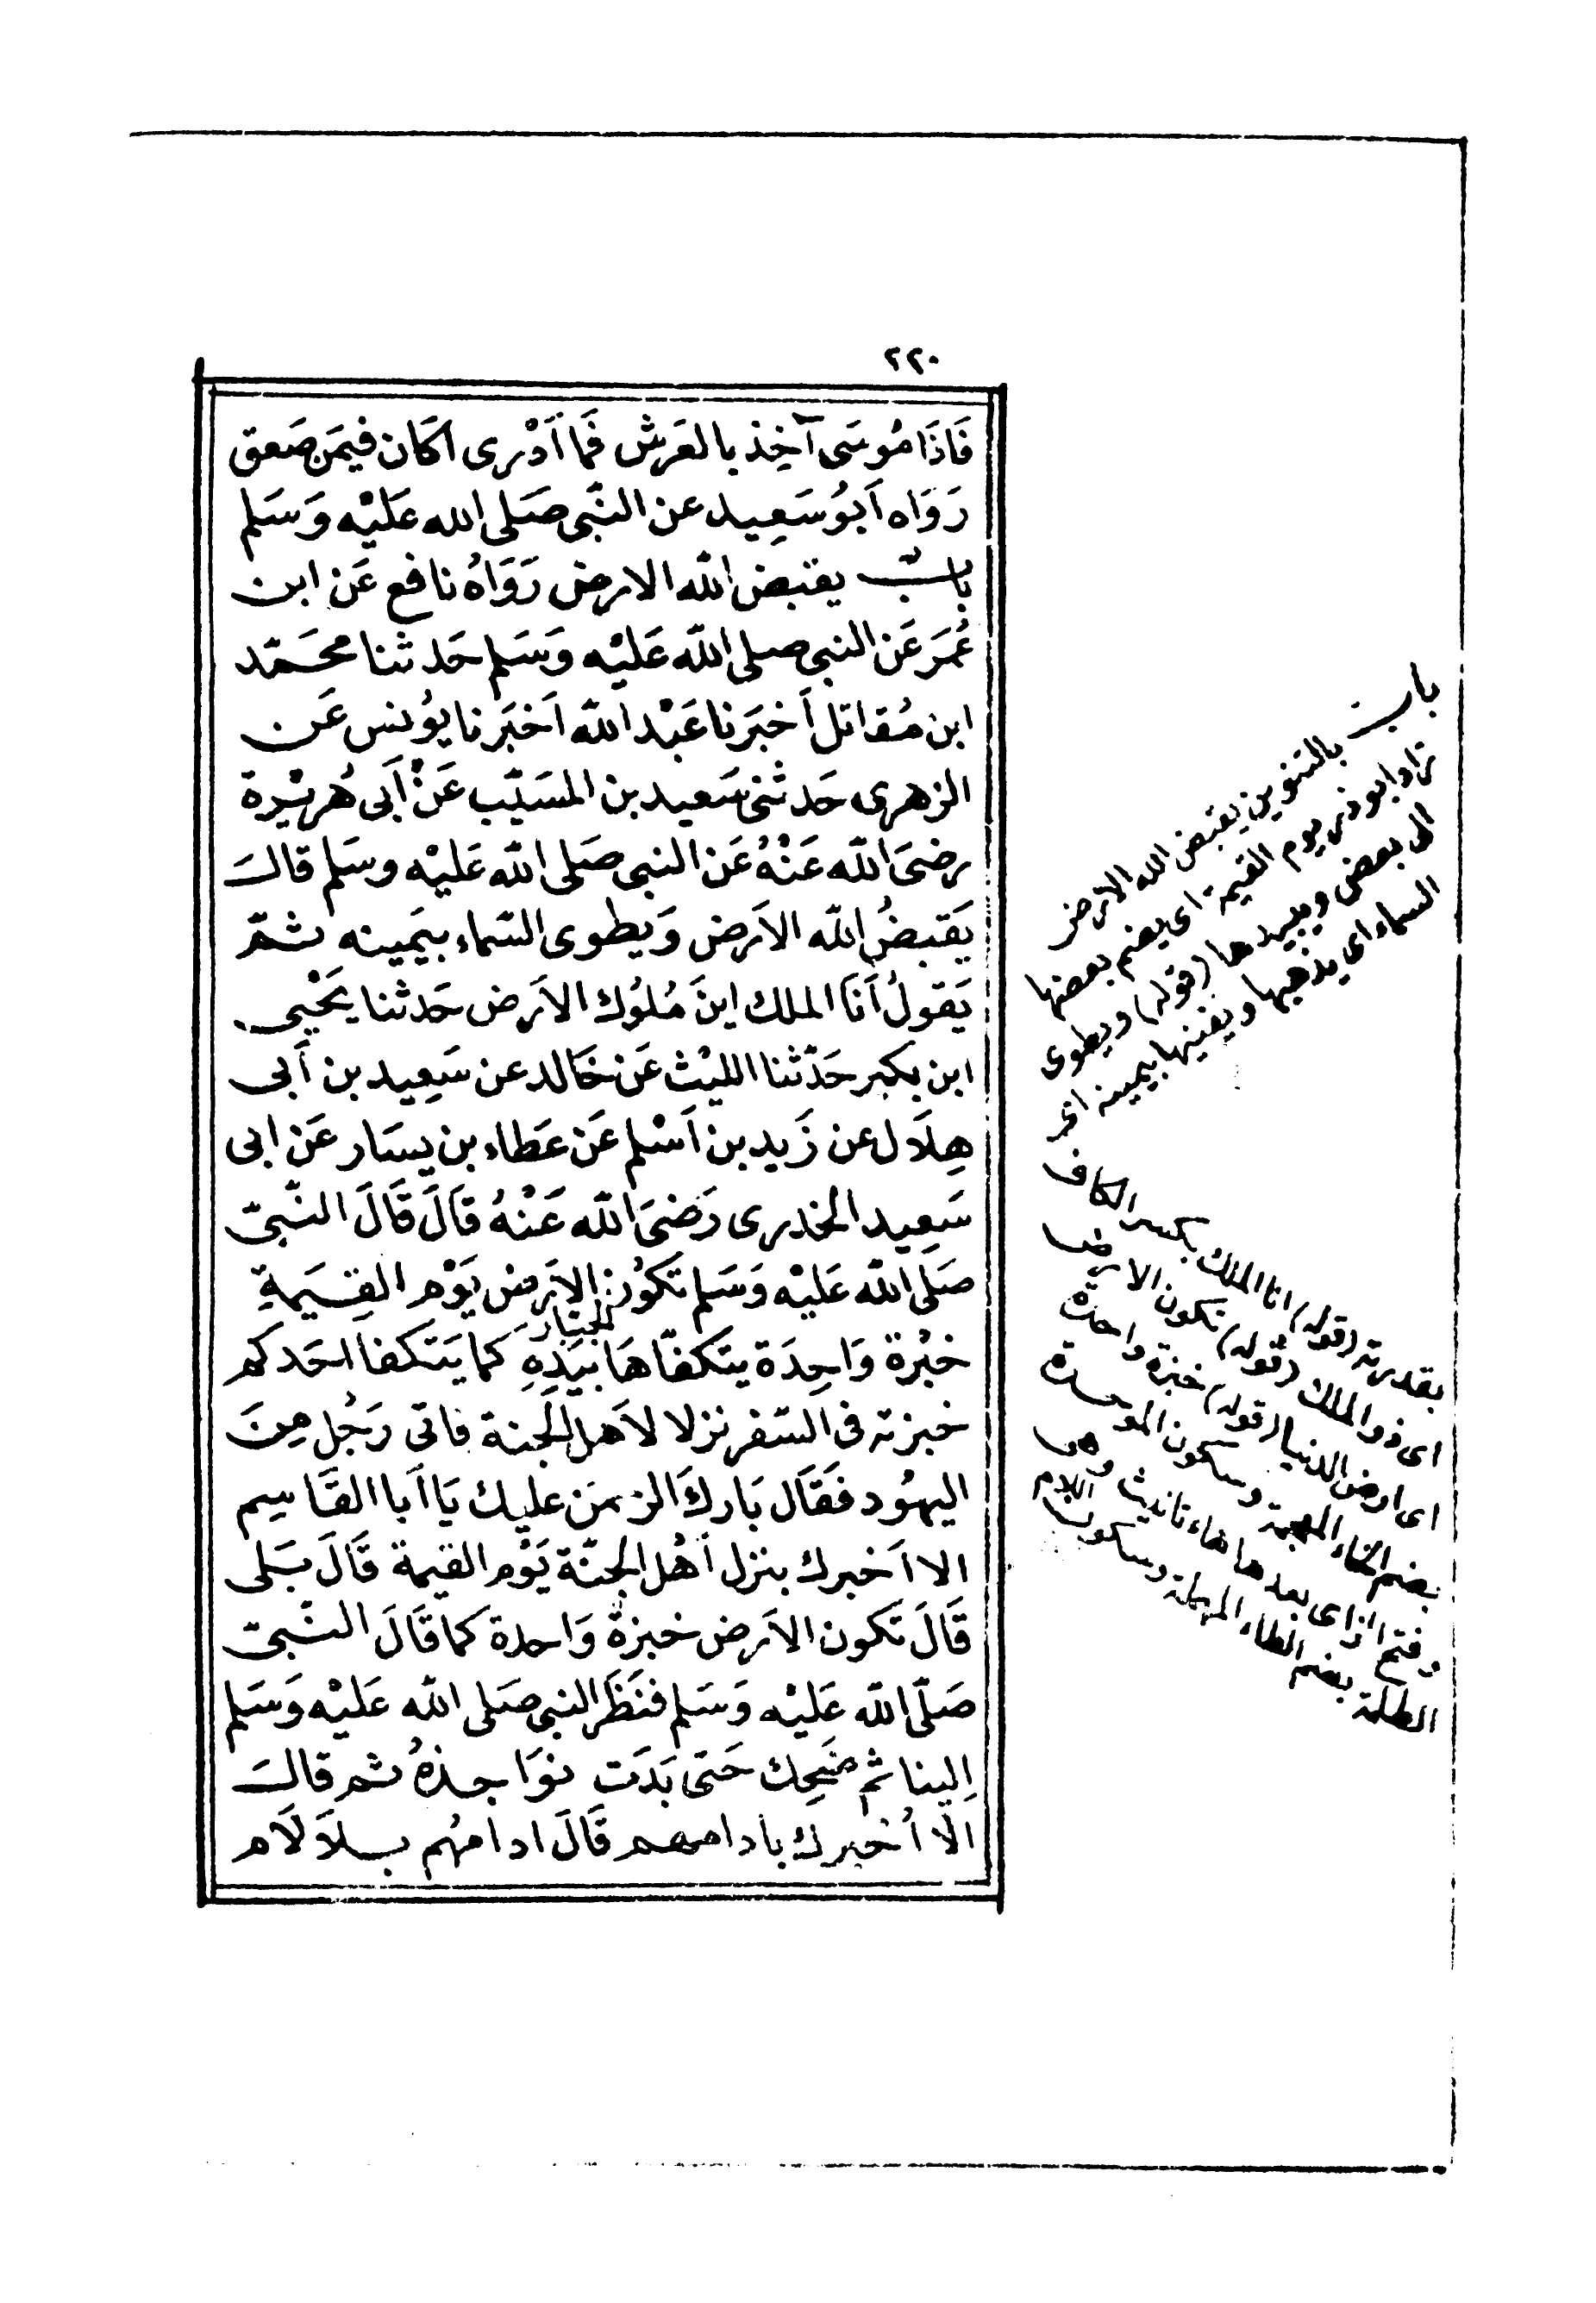 ٢٢٠
فَاذَا مُوسَى آخِذ بالعَرش فَمَا أَدْرى اكَان فيمَن صَعق
رَوَاه اَبوُ سَعِيد عن النّبى صَلى الله عَلَيْه وَسَلم
بابٌ يقبض الله الارض رَوَاهُ نافع عَن ابن
عُمَر عَن النبى صلى الله عَليْه وَسَلم حَدثنا محَمّد
ابن مُقاتل اَخبَرنا عَبْد الله اَخبَرنا يوُنس عَن
الزهرى حَدثنى سَعيد بن المسَيّب عَنْ أَبى هُريْرة
رضىَ الله عَنْهُ عَن النبى صَلى الله عَليْه وسَلم قالَ
يَقبضُ الله الاَرض وَيطوى السّماء بيَمينه ثمّ
يَقولُ أنَا الملك اينَ مُلوُك الاَرض حَدثنا يَحْيى
ابن بكير حَدّثنا الليْث عَن خَالد عن سَعِيد بن أَبى
هِلَال عن زَيد بن اَسْلم عَن عَطاء بن يسَار عَن ابى
سَعِيد الخدرى رَضىَ الله عَنْهُ قالَ قَالَ النّبىّ
صَلى الله عَليْه وَسَلم تَكوُن الاَرض يَوْم القِيَمةِ
خبْزة وَاحِدَة يتكفّاهَا الجبّار بيَدِهِ كما يَتكفا احَدكم
خبزته فى السّفر نزلا لاَهل الجنة فاتى رَجُل مِنَ
اليهُود فَقَال بَاركَ الرحمَن عليك يَا أَبا القَاسِم
الا اَخبرك بنزل أَهْل الجنّة يَوْم القيمة قَالَ بَلى
قَالَ تَكون الاَرض خبزةً وَاحدة كما قَالَ النّبىّ
صَلّى الله عَليْه وَسَلم فنَظَر النبى صَلى الله عَليْه وَسَلم
اِلينا ثم ضَحِك حَتى بَدَت نوَاجذهُ ثم قالَ
الَا أُخبرك بادامهم قَالَ ادامهُم بَالَام
باب بالتنوين يقبض الله الارض
زاد ابو ذر يوم القيمة اى يضم بعضها
الى بعض ويبيدها (قوله) ويطوى
السماء اى يذهبها ويفنيها بيمينه اى
بقدرته (قوله) انا الملك بكسر الكاف
اى ذو الملك (قوله) تكون الارض
اى ارض الدنيا (قوله) خبزة واحدة
بضم الخاء المعجمة وسكون الموحدة
وفتح الزاى بعدها هاء تانيث وهى
الطلمة بضم الطاء المهملة وسكون اللام